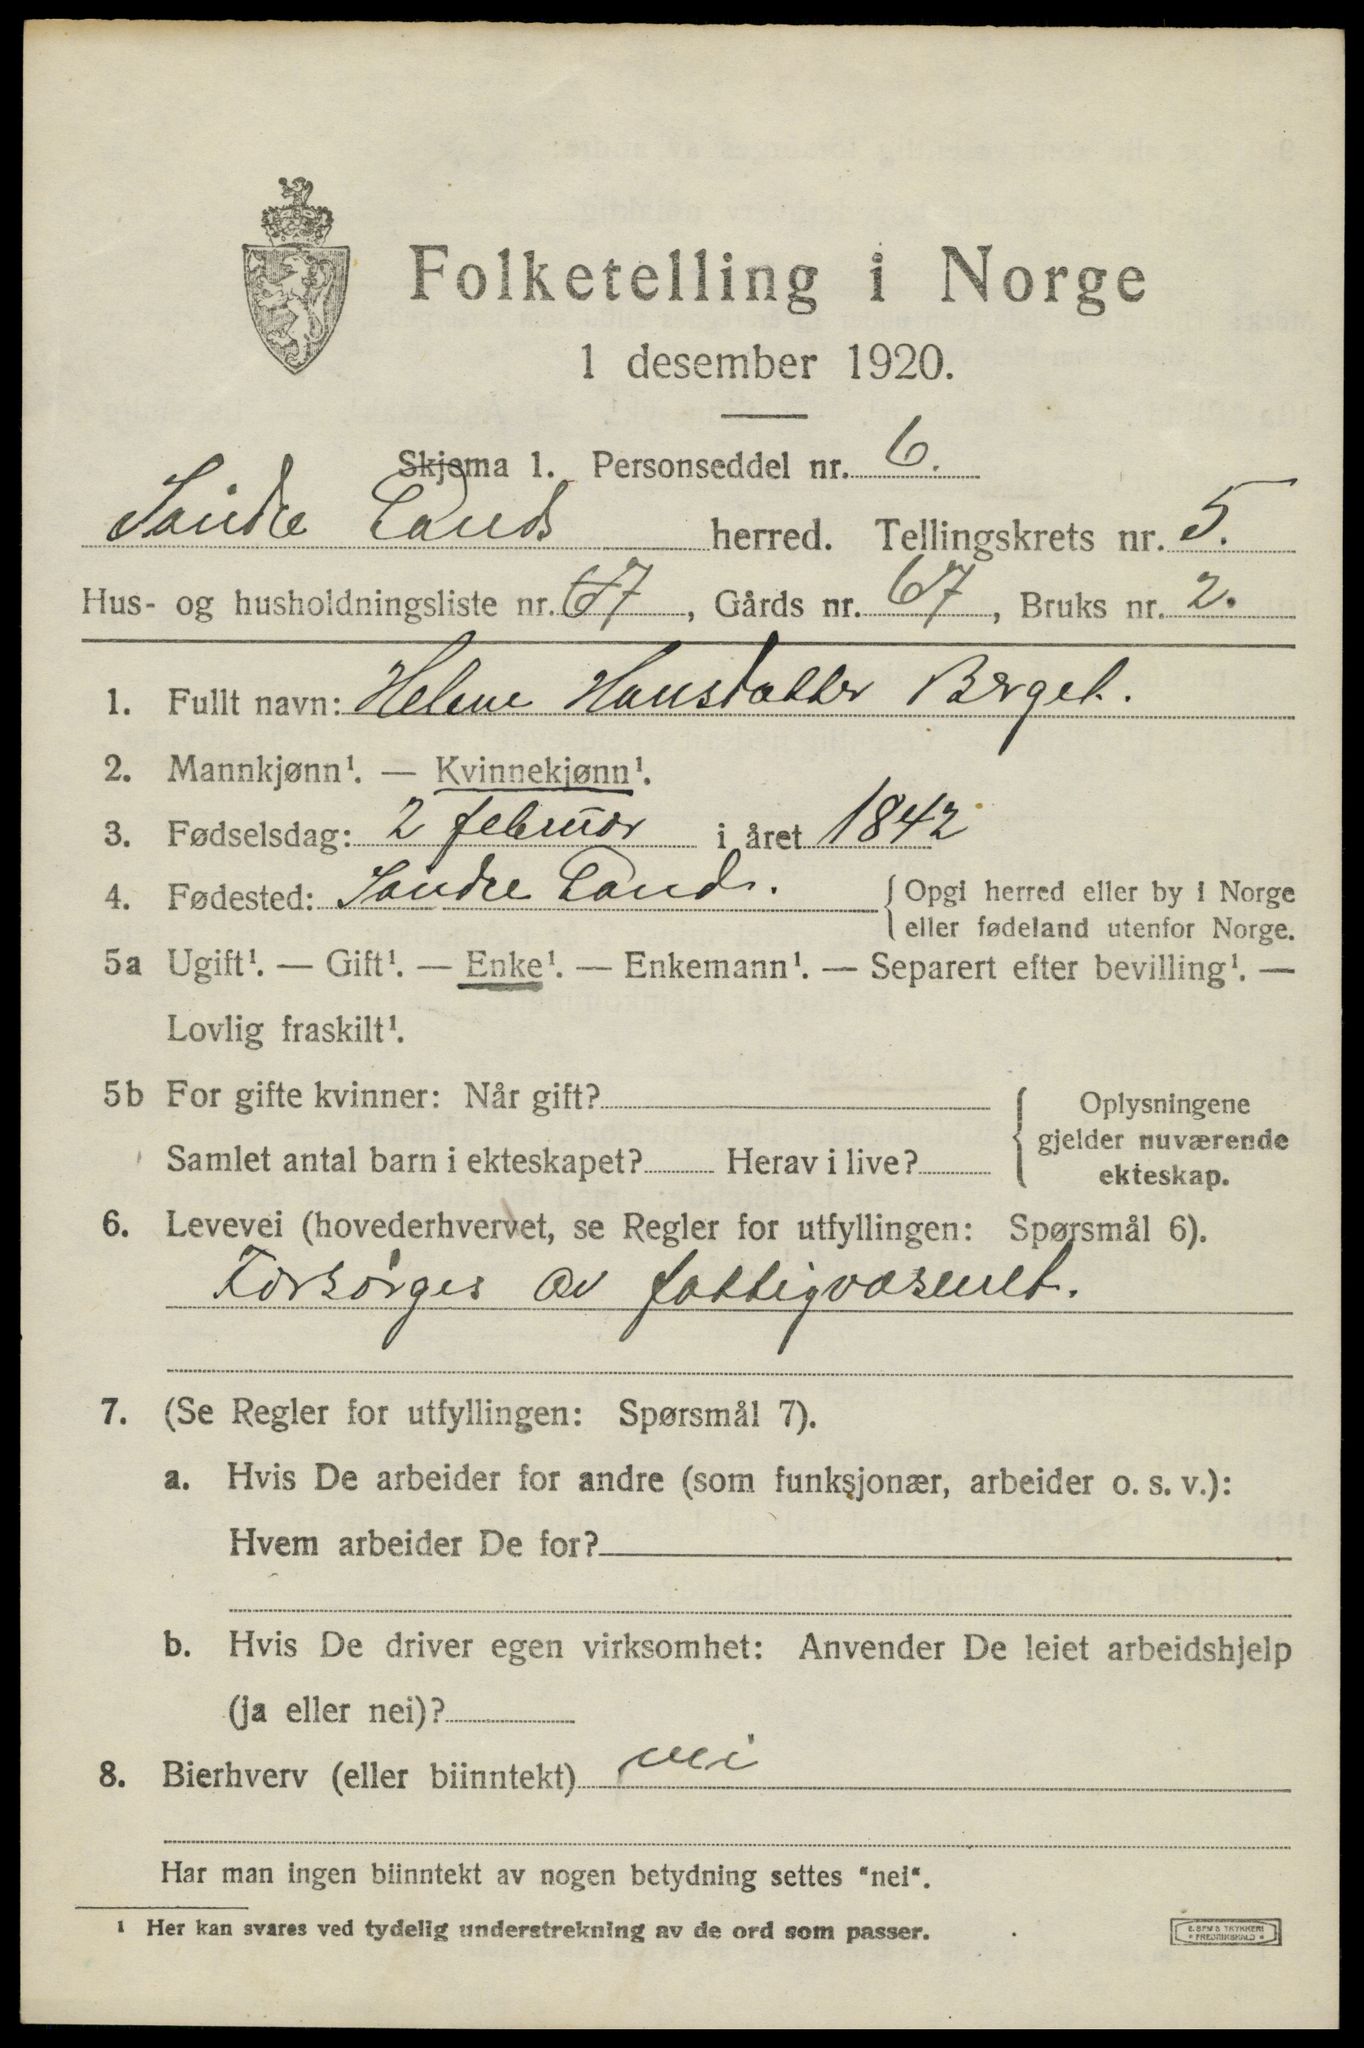 Folketelling i Norge
1 desember 1920.
Skjema 1. Personseddel nr. 6.
Søndre Lands herred. Tellingskrets nr. 5.
Hus- og husholdningsliste nr. 67, Gårds nr. 67, Bruks nr. 2.
1. Fullt navn: Helene Hansdatter Berget.
2. Mannkjønn¹. — Kvinnekjønn¹.
3. Fødselsdag: 2 februar i året 1842
4. Fødested: Søndre Land. { Opgi herred eller by i Norge
eller fødeland utenfor Norge.
5a Ugift¹. — Gift¹. — Enke¹. — Enkemann¹. — Separert efter bevilling¹. —
Lovlig fraskilt¹.
5b For gifte kvinner: Når gift?
Samlet antal barn i ekteskapet? Herav i live?
{ Oplysningene
gjelder nuværende
ekteskap.
6. Levevei (hovederhvervet, se Regler for utfyllingen: Spørsmål 6).
Forsørges av fattigvæsenet.
7. (Se Regler for utfyllingen: Spørsmål 7).
a. Hvis De arbeider for andre (som funksjonær, arbeider o. s. v.):
Hvem arbeider De for?
b. Hvis De driver egen virksomhet: Anvender De leiet arbeidshjelp
(ja eller nei)?
8. Bierhverv (eller biinntekt) nei
Har man ingen biinntekt av nogen betydning settes "nei".
¹ Her kan svares ved tydelig understrekning av de ord som passer.
TRYKKERI
FREDRIKSHALD